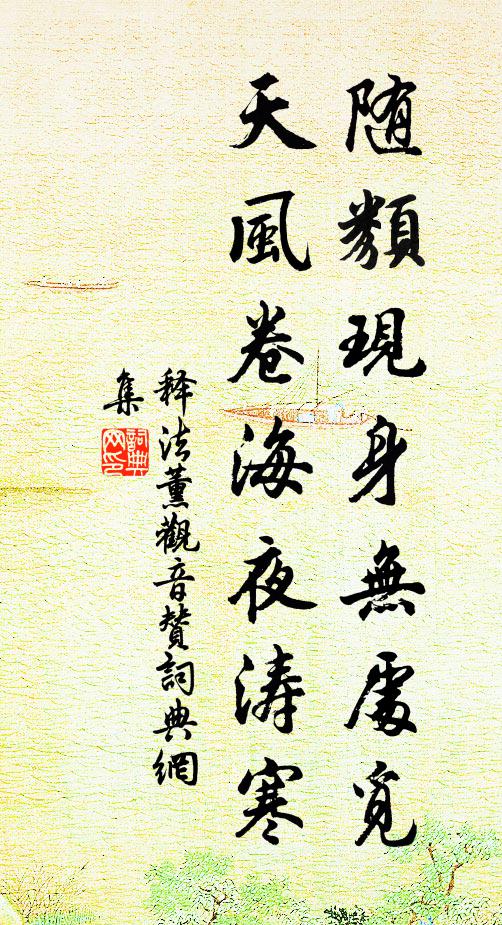 随類現身無處覓
天風卷海夜涛寒
释法薰觀音贊詞典網
集
詞典網印